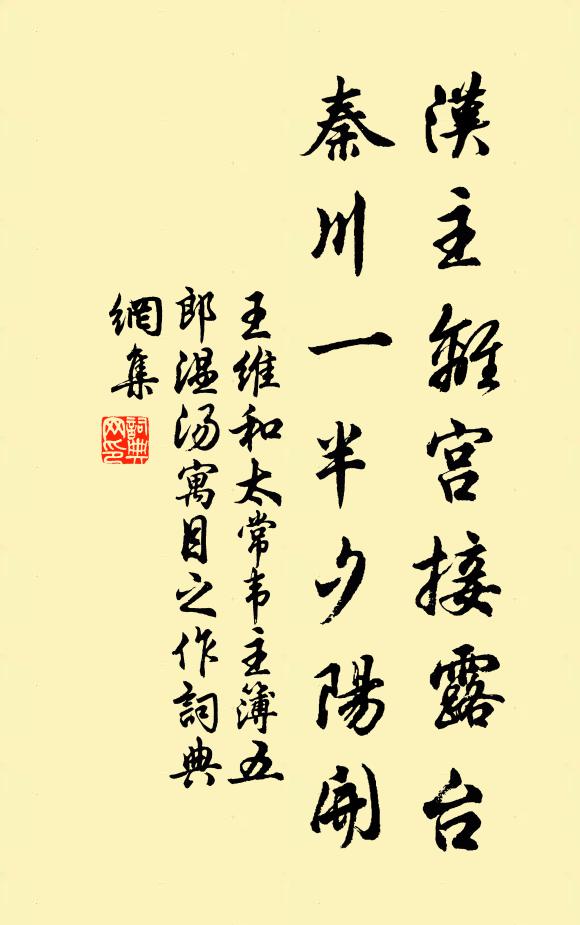 漢主離宮接露台
秦川一半夕陽開
王維和太常韦主簿五
郎温汤寓目之作詞典
網集
詞典
网印